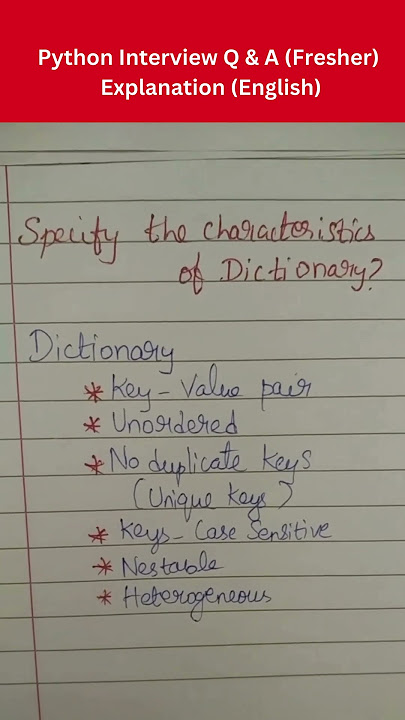 Python Interview Q & A (Fresher)
Explanation (English)
Specify the characteristics
of Dictionary?
Dictionary
* Key - Value pair
* Unordered
* No duplicate keys
(Unique keys)
* Keys - Case Sensitive
* Nestable
* Heterogeneous